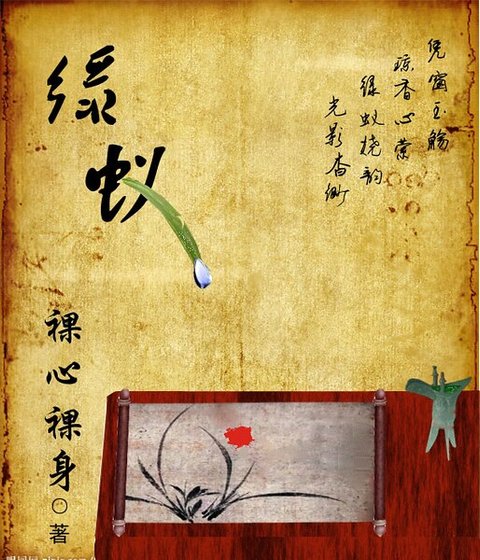 绿蚁
凭窗玉觞
琼香心萦
绿蚁韵
光影杳
裸心裸身○著